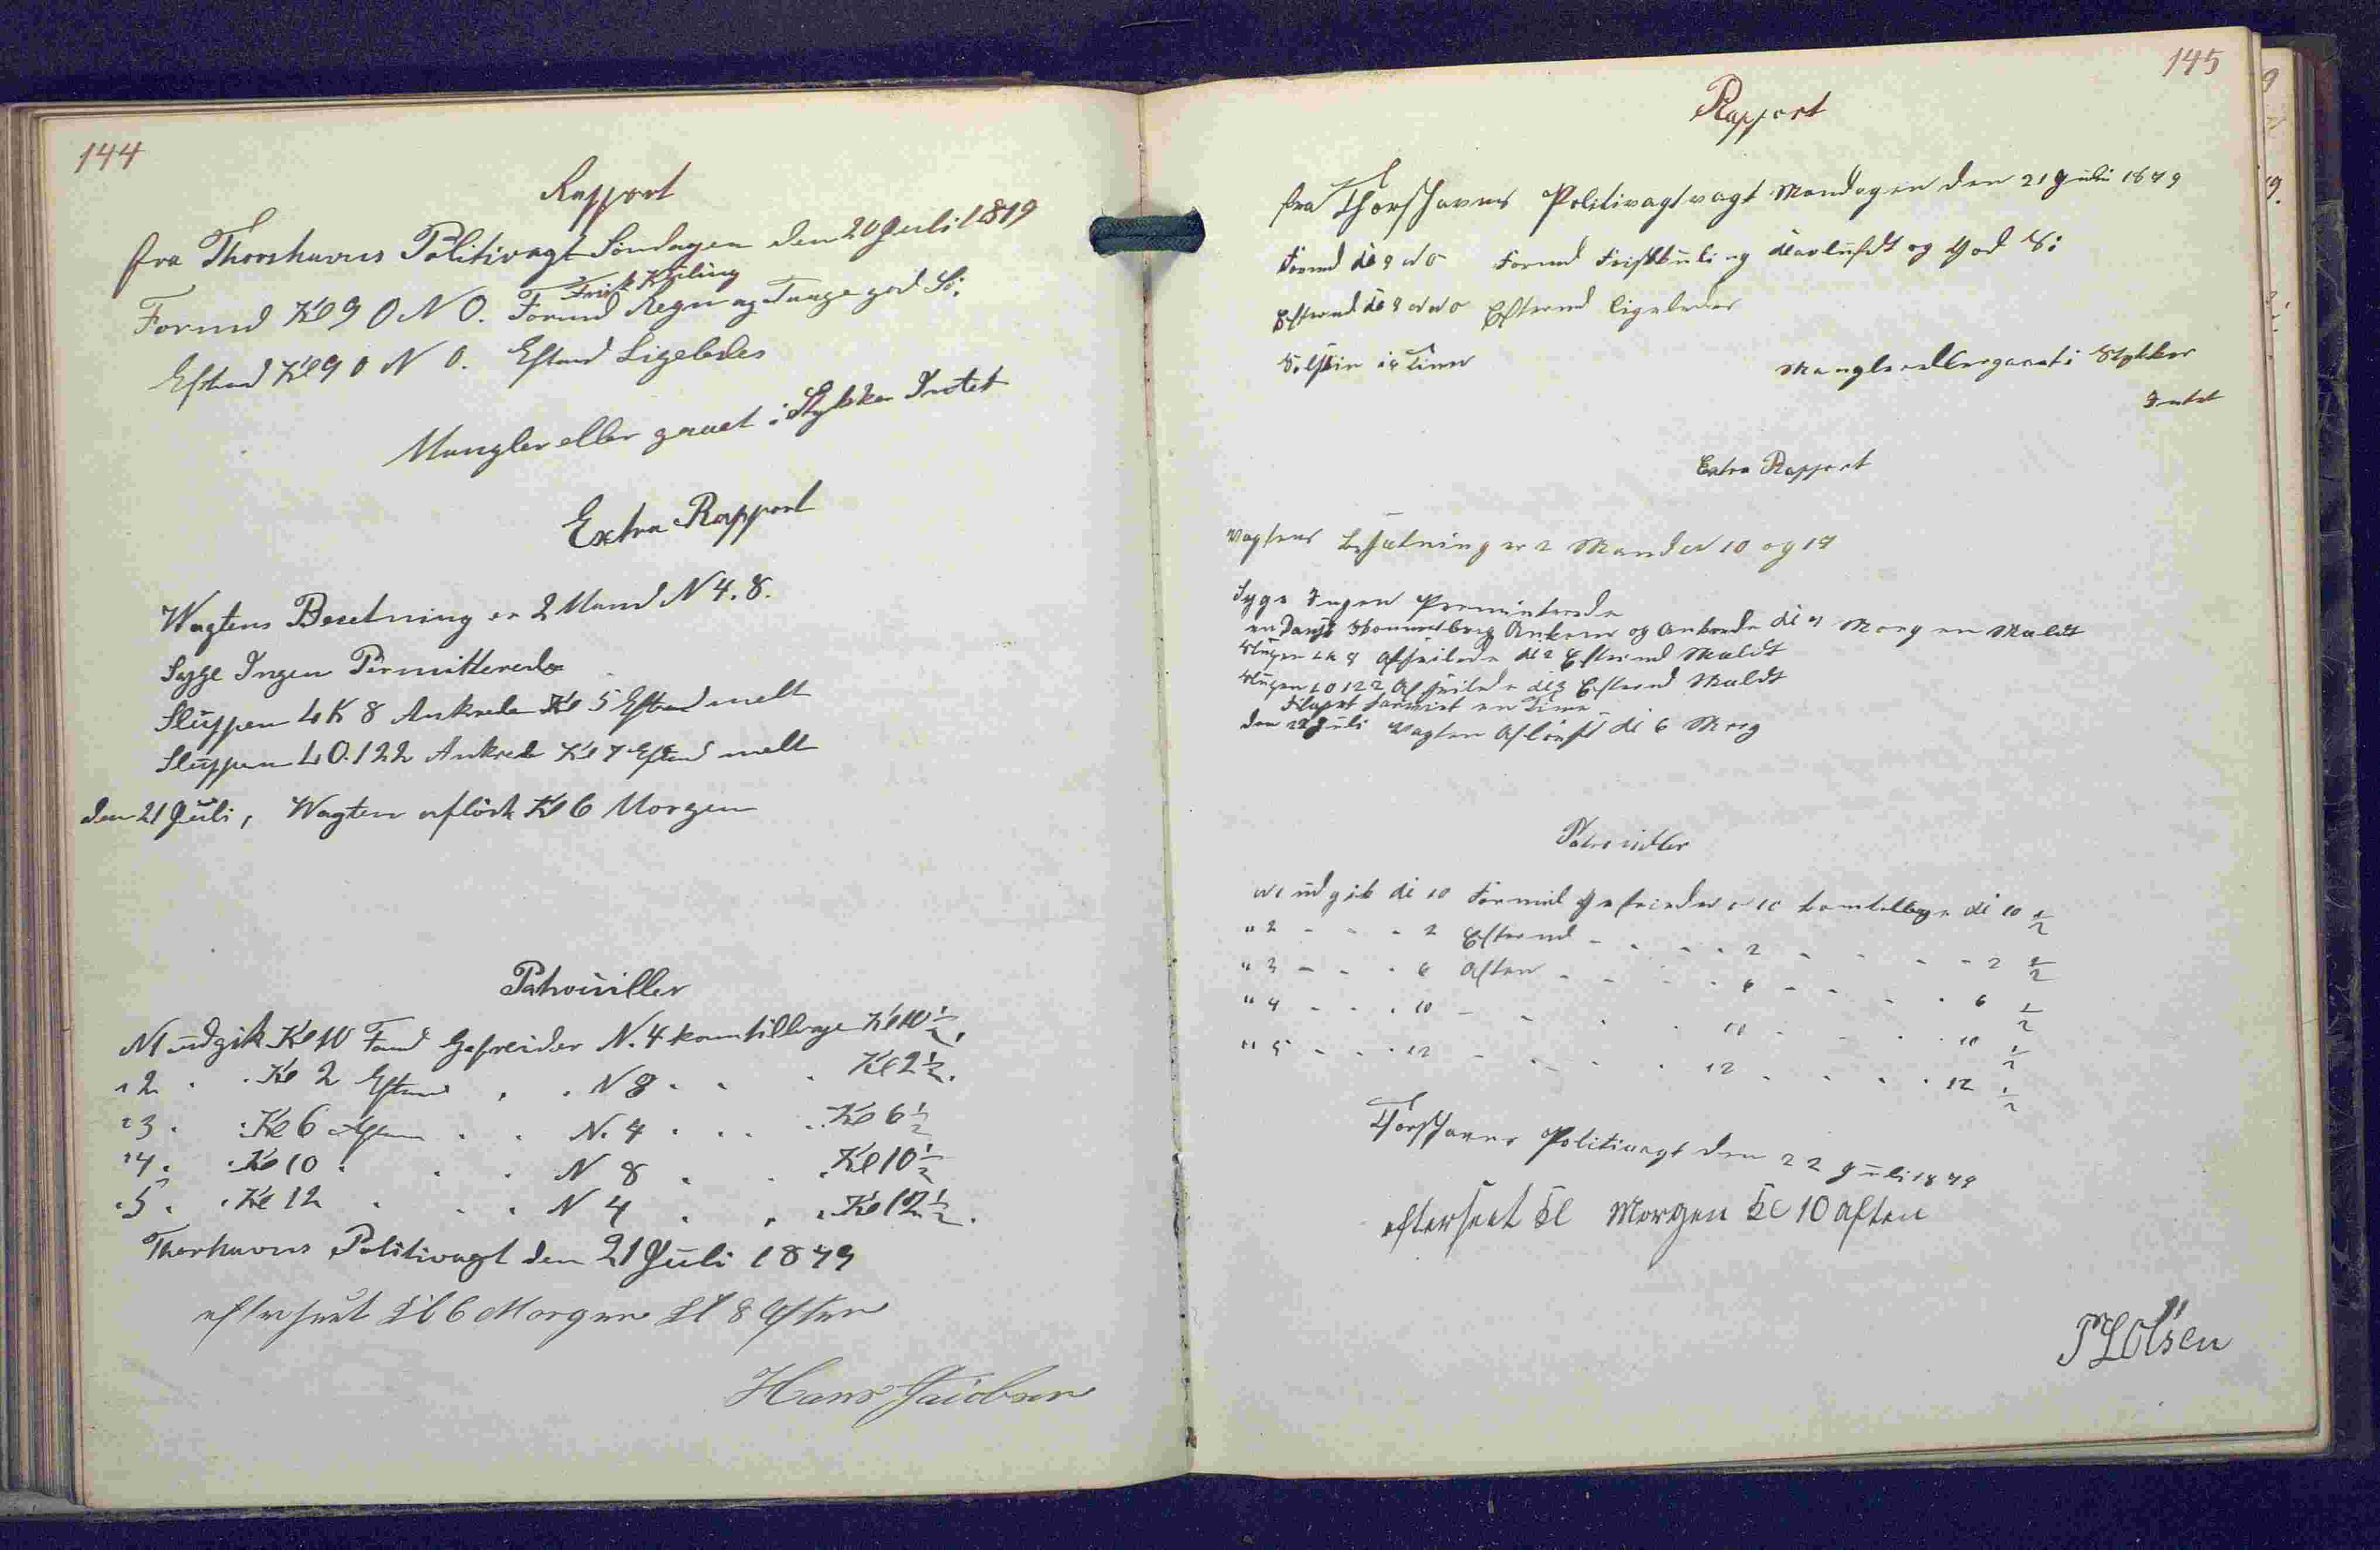 144
Rapport
fra Thorshavns Politivagt Søndagen den 20 Juli 1879
Frisk Kuling
Formd Kl 9 O N O. Formd Regn og Taage god Sö:
Eftmd Kl 9 O N O. Eftmd Ligeledes
Mangler eller gaaet i Stykker Intet
Extra Rapport
Wagtens Besetning er 2 Mand N 4. 8.
Syge Ingen Permitterede
Sluppen LK 8 Ankrede Kl 5 Eftmd melt
Sluppen LO. 122 Ankrede Kl 7 Eftmd melt
den 21 Juli, Wagten aflöst Kl 6 Morgen
Patrouiller
N 1 udgik Kl 10 Formd Gefreider N. 4 kom tilbage Kl 10 1/2.
" 2 . . Kl 2 Eftmd . . N 8 . . . Kl 2 1/2.
" 3 . . Kl 6 Aften . . N. 4 . . . Kl 6 1/2
" 4 . . Kl 10 . . . N 8 . . . Kl 10 1/2
" 5 . . Kl 12 . . . N 4 . . . Kl 12 1/2.
Thorhavns Politivagt den 21 Juli 1879
efterseet Kl 6 Morgen Kl 8 Aften
Hans Jacobsen
145
Rapport
fra Thorshavns Politivagtvagt Mandagen den 21 Juli 1879
Formd Kl 9 N O Formd Friskkuling Klarluft og God Sö
Eftermd Kl 9 N N O Eftermd ligeledes
Solskin 14 Timer
Mangler eller gaaet i Stykker
Intet
Extra Rapport
Vagtens Besætning er 2 Mand N 10 og 14
Syge Ingen Permitterede
en Dansk Ankom og Ankrede Kl 9 Morgen Meldt
Slupen LK 8 Afseilede Kl 2 Eftermd Meldt
Slupen LO 122 Afseilede Kl 3 Eftermd Meldt
en Time
den 22 Juli Vagten Aflöst Kl 6 Morg
Patrouiller
N 1 udgik Kl 10 Formid Gefreider N 10 kom tilbage Kl 10 1/2
" 2 - - - 2 Eftermd - - - - 2 - - - - 2 1/2
" 3 - - - 6 Aften - - - - 6 - - - - 6 1/2
" 4 - - - 10 - - - - 10 - - - - 10 1/2
" 5 - - - 12 - - - - 12 - - - - 12 1/2
Thorshavns Politivagt den 22 Juli 1879
efterseet Kl Morgen Kl 10 aften